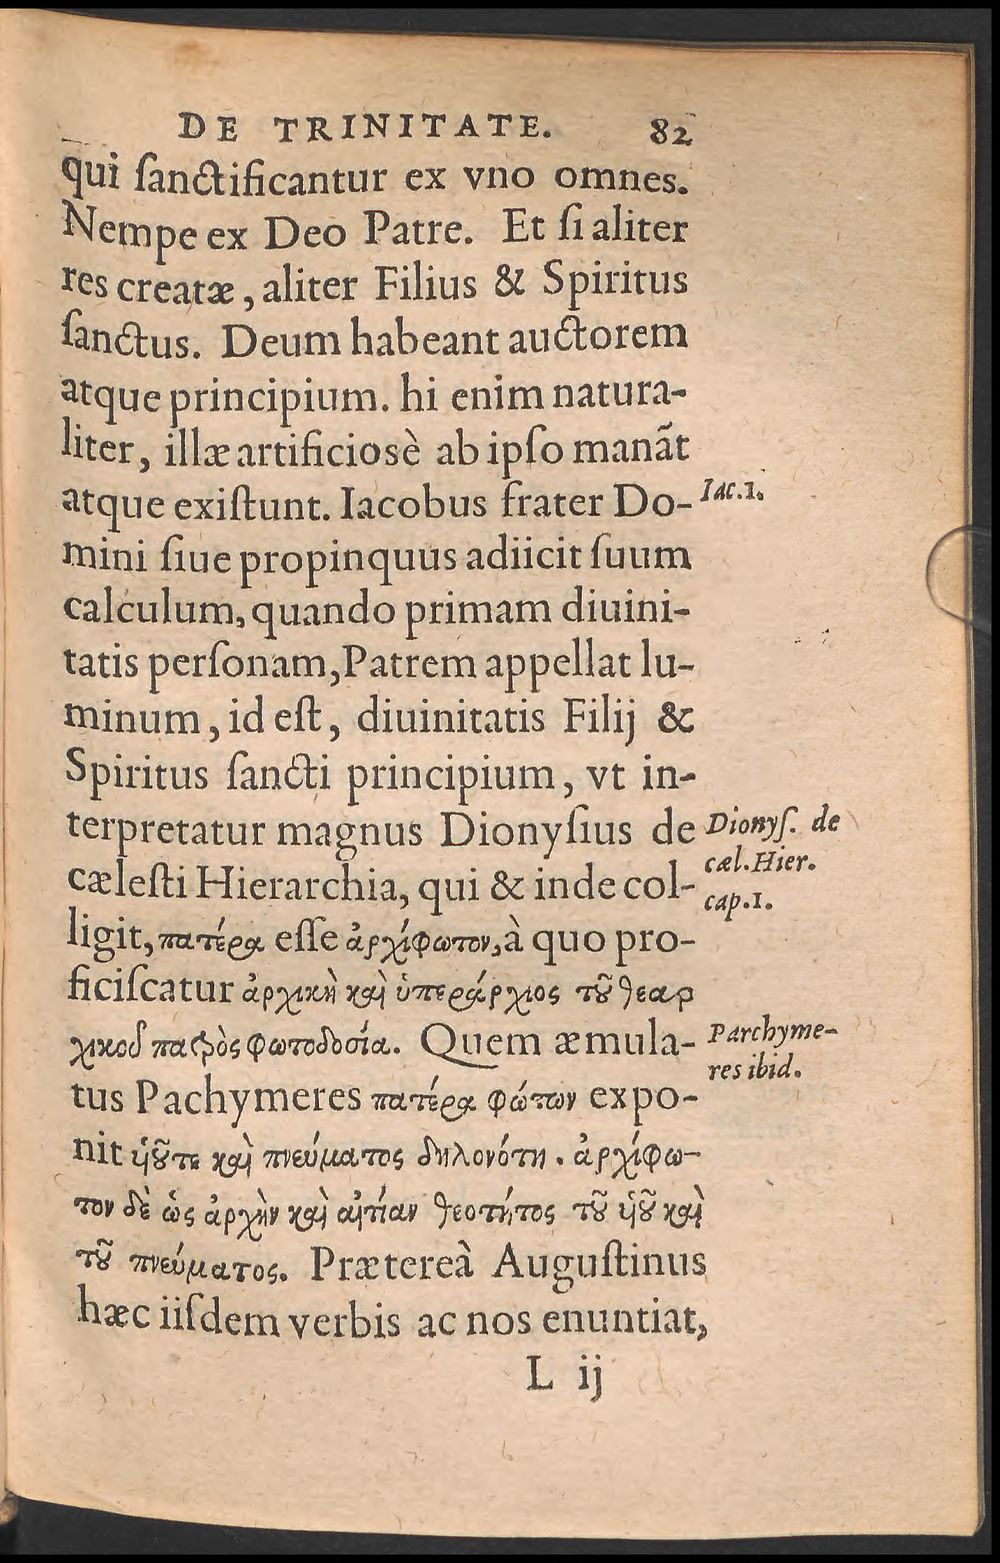 DE TRINITATE. 82
qui ſanctificantur ex vno omnes.
Nempe ex Deo Patre. Et ſi aliter
res creatæ, aliter Filius & Spiritus
ſanctus. Deum habeant auctorem
atque principium. hi enim natura-
liter, illæ artificiosè ab ipſo manãt
atque exiſtunt. Iacobus frater Do-
Iac.1.
mini ſiue propinquus adiicit ſuum
calculum, quando primam diuini-
tatis perſonam, Patrem appellat lu-
minum, id eſt, diuinitatis Filij &
Spiritus ſancti principium, vt in-
terpretatur magnus Dionyſius de
Dionyſ. de
cæleſti Hierarchia, qui & inde col-
cæl.Hier.
cap.1.
ligit, πατέρα eſſe ἀρχίφωτον, à quo pro-
ficiſcatur ἀρχικὴ καὶ ὑπεράρχιος τοῦ θεαρ
χικοῦ πατρὸς φωτοδοσία. Quem æmula-
Parchyme-
res ibid.
tus Pachymeres πατέρα φώτων expo-
nit ὑοῦτε καὶ πνεύματος δηλονότι. ἀρχίφω-
τον δὲ ὡς ἀρχὴν καὶ αἰτίαν θεοτήτος τοῦ ὑοῦ καὶ
τοῦ πνεύματος. Prætereà Auguſtinus
hæc iiſdem verbis ac nos enuntiat,
L ij